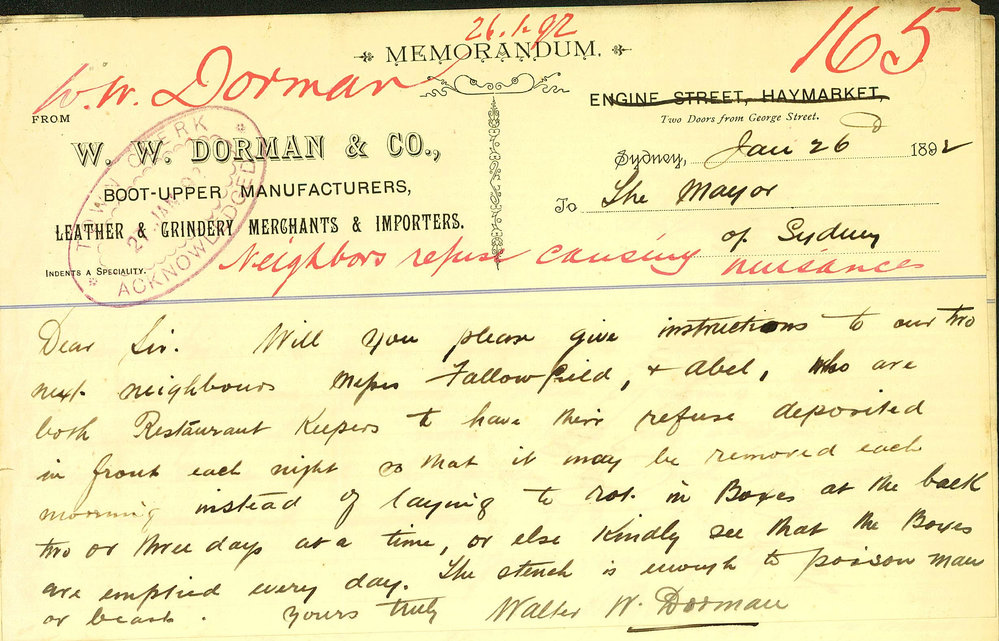 26.1.92
MEMORANDUM.
165
W.W. Dorman
ENGINE STREET, HAYMARKET,
Two Doors from George Street.
FROM
W. W. DORMAN & CO.,
BOOT-UPPER MANUFACTURERS,
LEATHER & GRINDERY MERCHANTS & IMPORTERS.
INDENTS A SPECIALITY.
TOWN CLERK
ACKNOWLEDGED
Sydney, Jan 26 1892
To The Mayor
of Sydney
Neighbors refuse causing nuisances
Dear Sir. Will you please give instructions to our two
next neighbours Messrs Fallowfield, & Abel, who are
both Restaurant Keepers to have their refuse deposited
in front each night so that it may be removed each
morning instead of laying to rot in Boxes at the back
two or three days at a time, or else Kindly see that the Boxes
are emptied every day. The stench is enough to poison man
or beast. Yours truly Walter W. Dorman